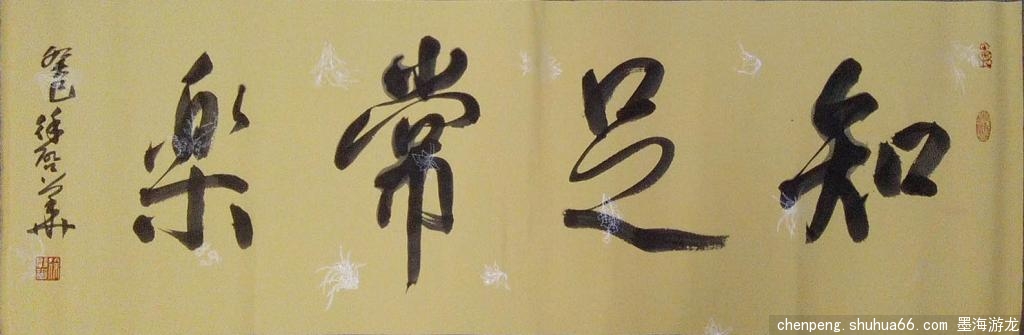 知足常樂
癸巳 徐啓華
chenpeng.shuhua66.com 墨海游龙